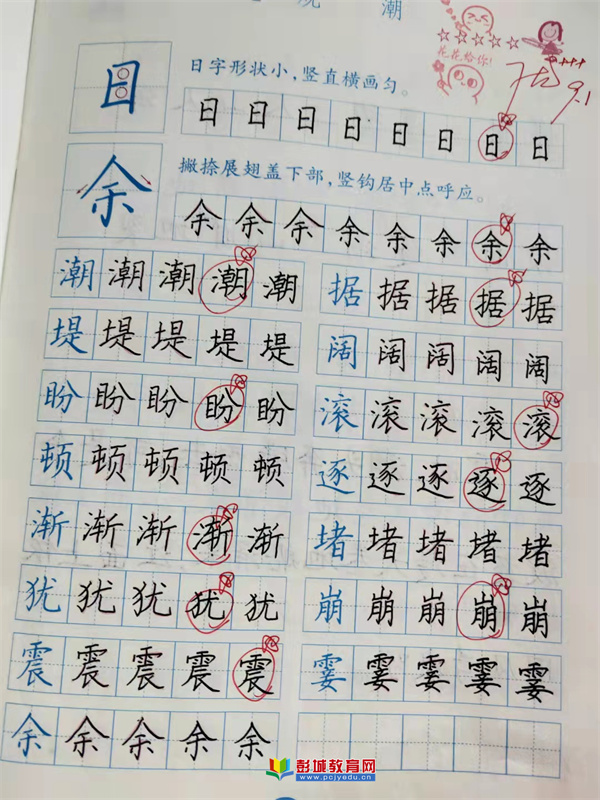 潮
花花给你!
9.1
日 日字形状小,竖直横画匀。
日 日 日 日 日 日 日 日
余 撇捺展翅盖下部,竖钩居中点呼应。
余 余 余 余 余 余 余 余
潮 潮 潮 潮 潮 据 据 据 据 据
堤 堤 堤 堤 堤 阔 阔 阔 阔 阔
盼 盼 盼 盼 盼 滚 滚 滚 滚 滚
顿 顿 顿 顿 顿 逐 逐 逐 逐 逐
渐 渐 渐 渐 渐 堵 堵 堵 堵 堵
犹 犹 犹 犹 犹 崩 崩 崩 崩 崩
震 震 震 震 震 霎 霎 霎 霎 霎
余 余 余 余 余
彭城教育网
www.pcjyedu.cn